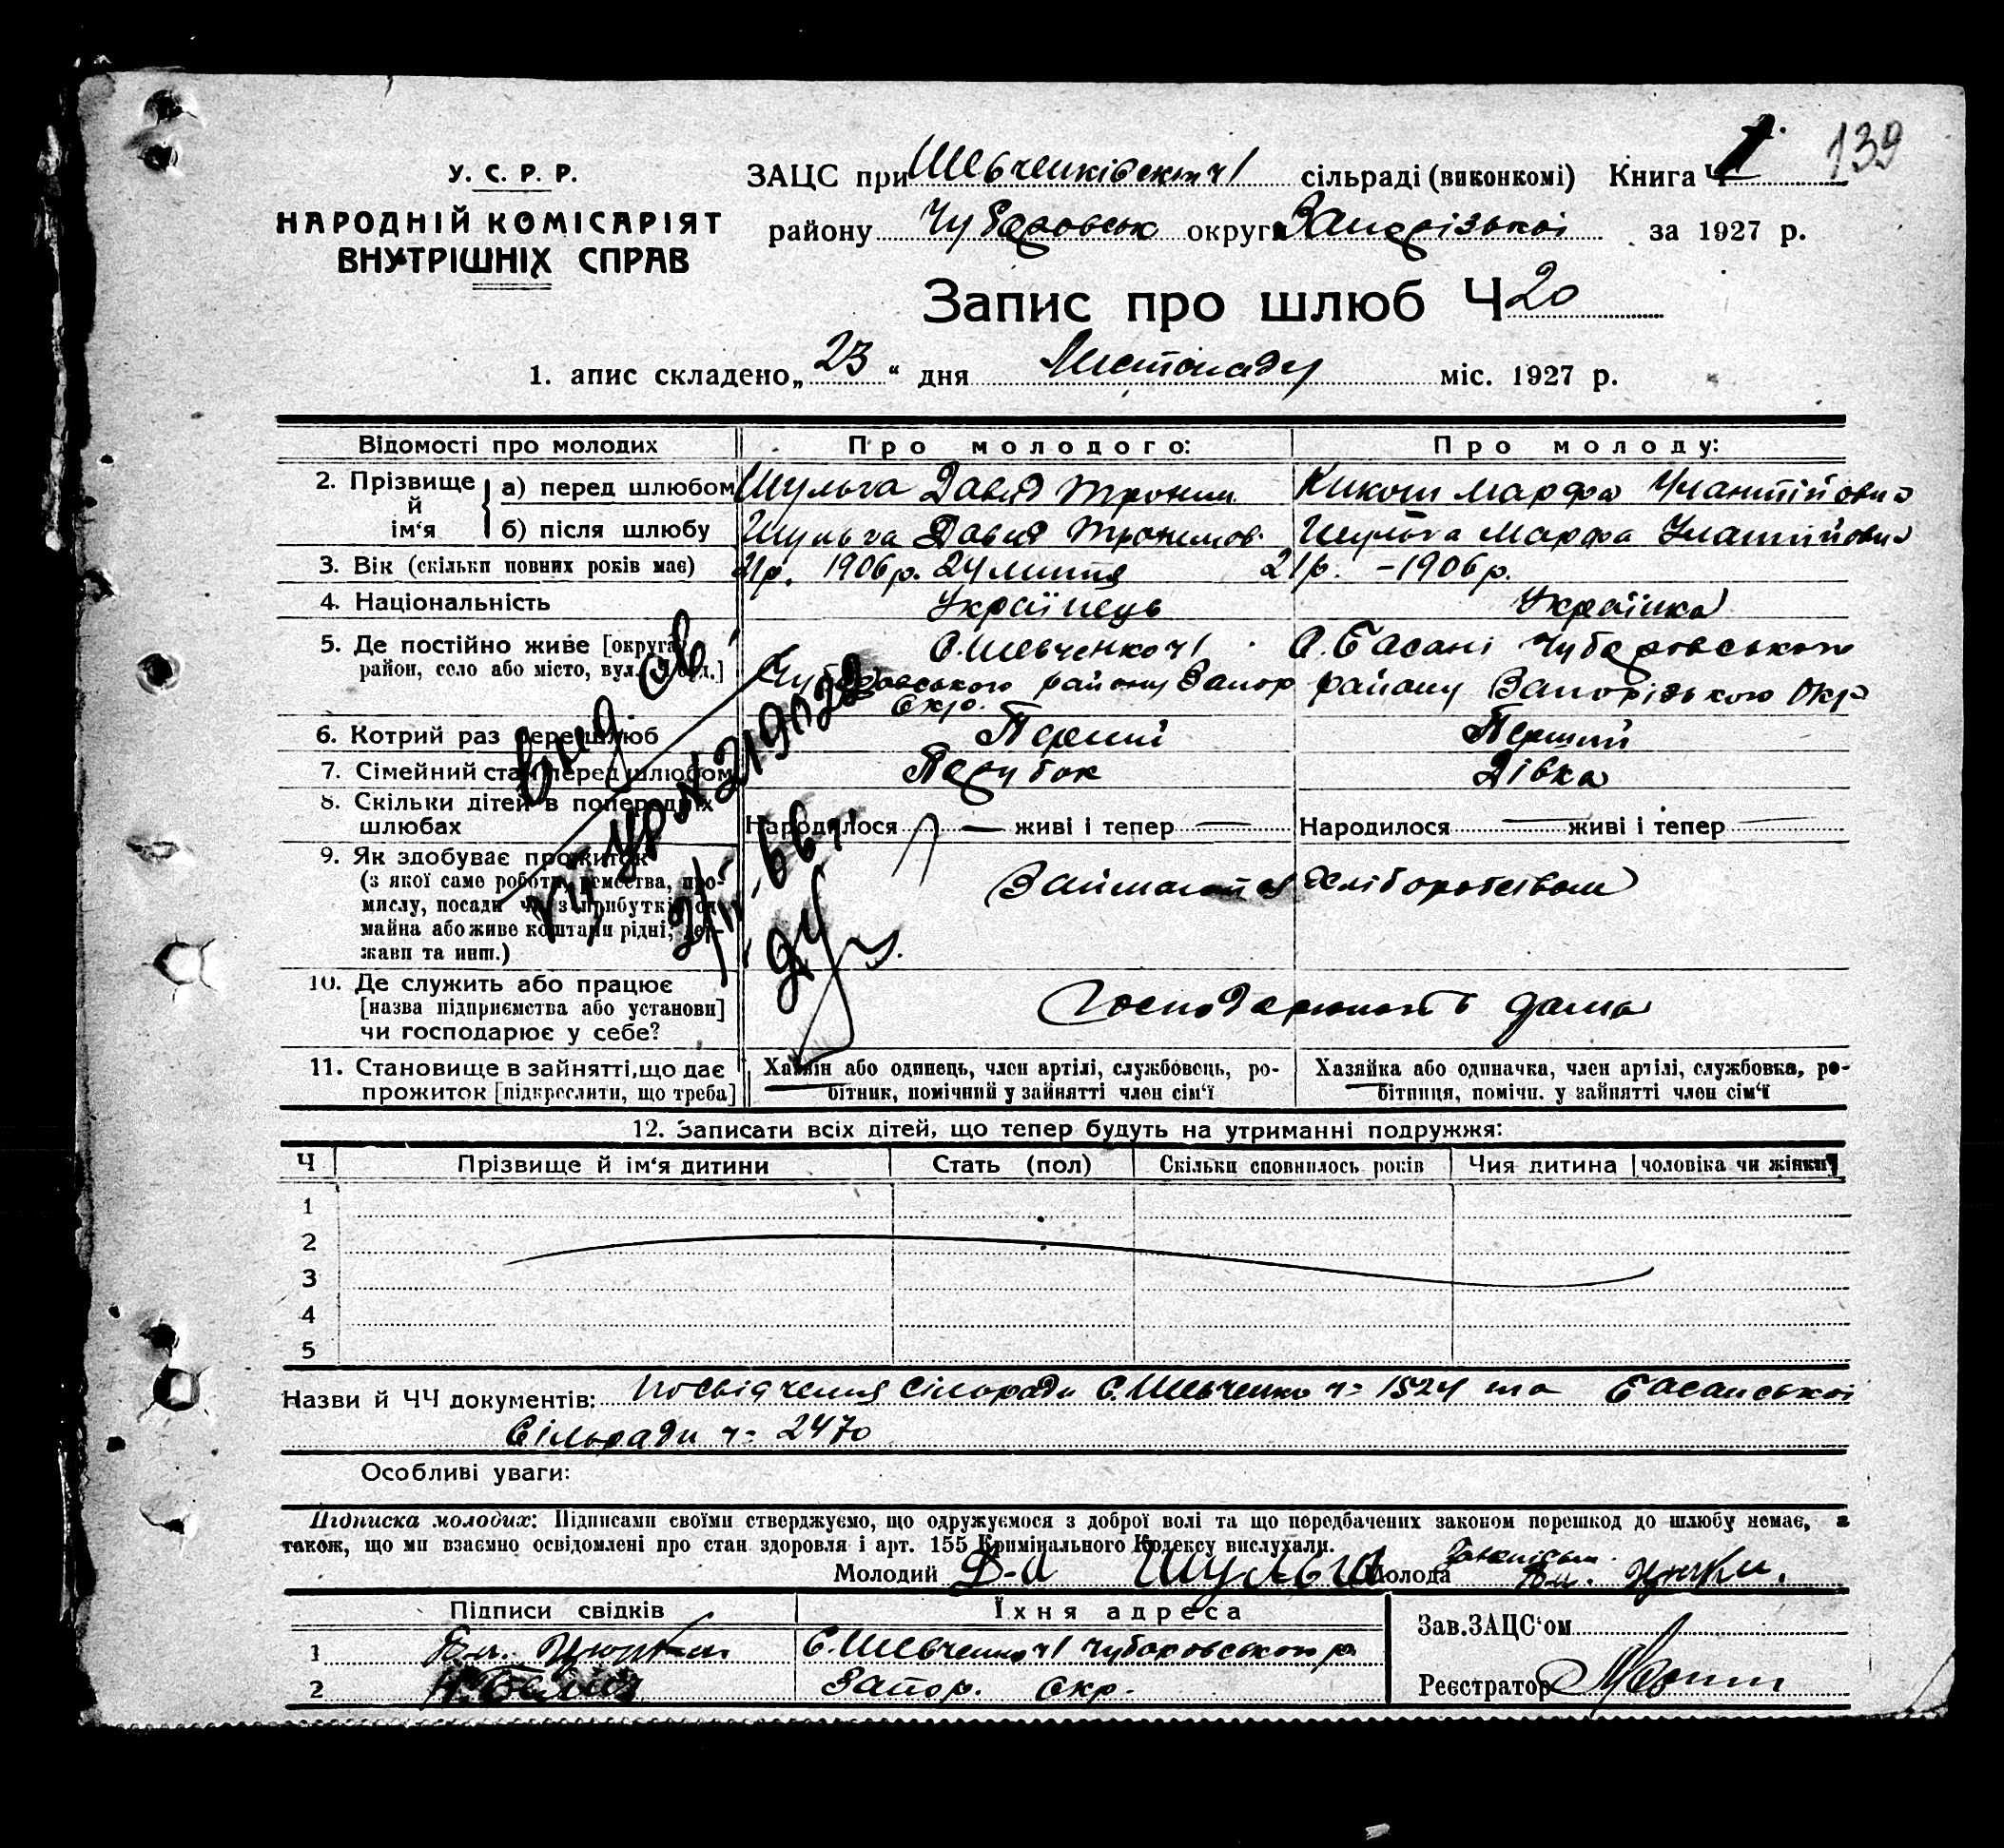 139
У. С. Р. Р.
НАРОДНІЙ КОМІСАРІЯТ
ВНУТРІШНІХ СПРАВ
ЗАЦС при Шевченківскоч1 сільраді (виконкомі) Книга Ч 1
району Чубаровськ округи Запорізькоі за 1927 р.
Запис про шлюб Ч 20
1. апис складено „ 23 “ дня Листопаду міс. 1927 р.
Відомості про молодих
Про молодого:
Про молоду:
2. Прізвище й ім‘я
а) перед шлюбом
Шульга Давид Трохим
Марфа
б) після шлюбу
Шульга Давид Трохимов.
Шульга Марфа
3. Вік (скільки повних років має)
21р. 1906р. 24 липня
21р. – 1906р.
4. Національність
Українець
Українка
5. Де постійно живе [округа,
район, село або місто, вул. і буд.]
С. Шевченко ч1
Чубаровського району Запор
Окр.
С. Басані Чубаровського
району Запорізького Окр
6. Котрий раз бере шлюб
Перший
Перший
7. Сімейний стан перед шлюбом
Парубок
Дівка
8. Скільки дітей в попередніх
шлюбах
Народилося — живі і тепер —
Народилося — живі і тепер —
9. Як здобуває прожиток
(з якої саме роботи, ремества, про-
мислу, посади чи з прибутків од
майна або живе коштами рідні, дер-
жави та инш.)
Займаются хліборобством
10. Де служить або працює
[назва підприємства або установи]
чи господарює у себе?
Господарюють дома
11. Становище в зайнятті, що дає
прожиток [підкреслити, що треба]
Хазяїн або одинець, член артілі, службовець, ро-
бітник, помічний у зайнятті член сім‘ї
Хазяйка або одиначка, член артілі, службовка, ро-
бітниця, помічн. у зайнятті член сім‘ї
12. Записати всіх дітей, що тепер будуть на утриманні подружжя:
Ч
Прізвище й ім‘я дитини
Стать (пол)
Скільки сповнилось років
Чия дитина [чоловіка чи жінки]
1
2
3
4
5
Назви й ЧЧ документів: посвідчення сільради С. Шевченко ч= 1524 та Басанської
Сільради ч= 2470
Особливі уваги:
Підписка молодих: Підписами своїми стверджуємо, що одружуємося з доброї волі та що передбачених законом перешкод до шлюбу немає, а
також, що ми взаємно освідомлені про стан здоровля і арт. 155 Кримінального Кодексу вислухали.
Молодий Д-д Шульга Молода
Підписи свідків
Їхня адреса
1
С. Шевченко ч1 Чубаровського р.
2
Запор. Окр.
Зав. ЗАЦС‘ом
Реєстратор